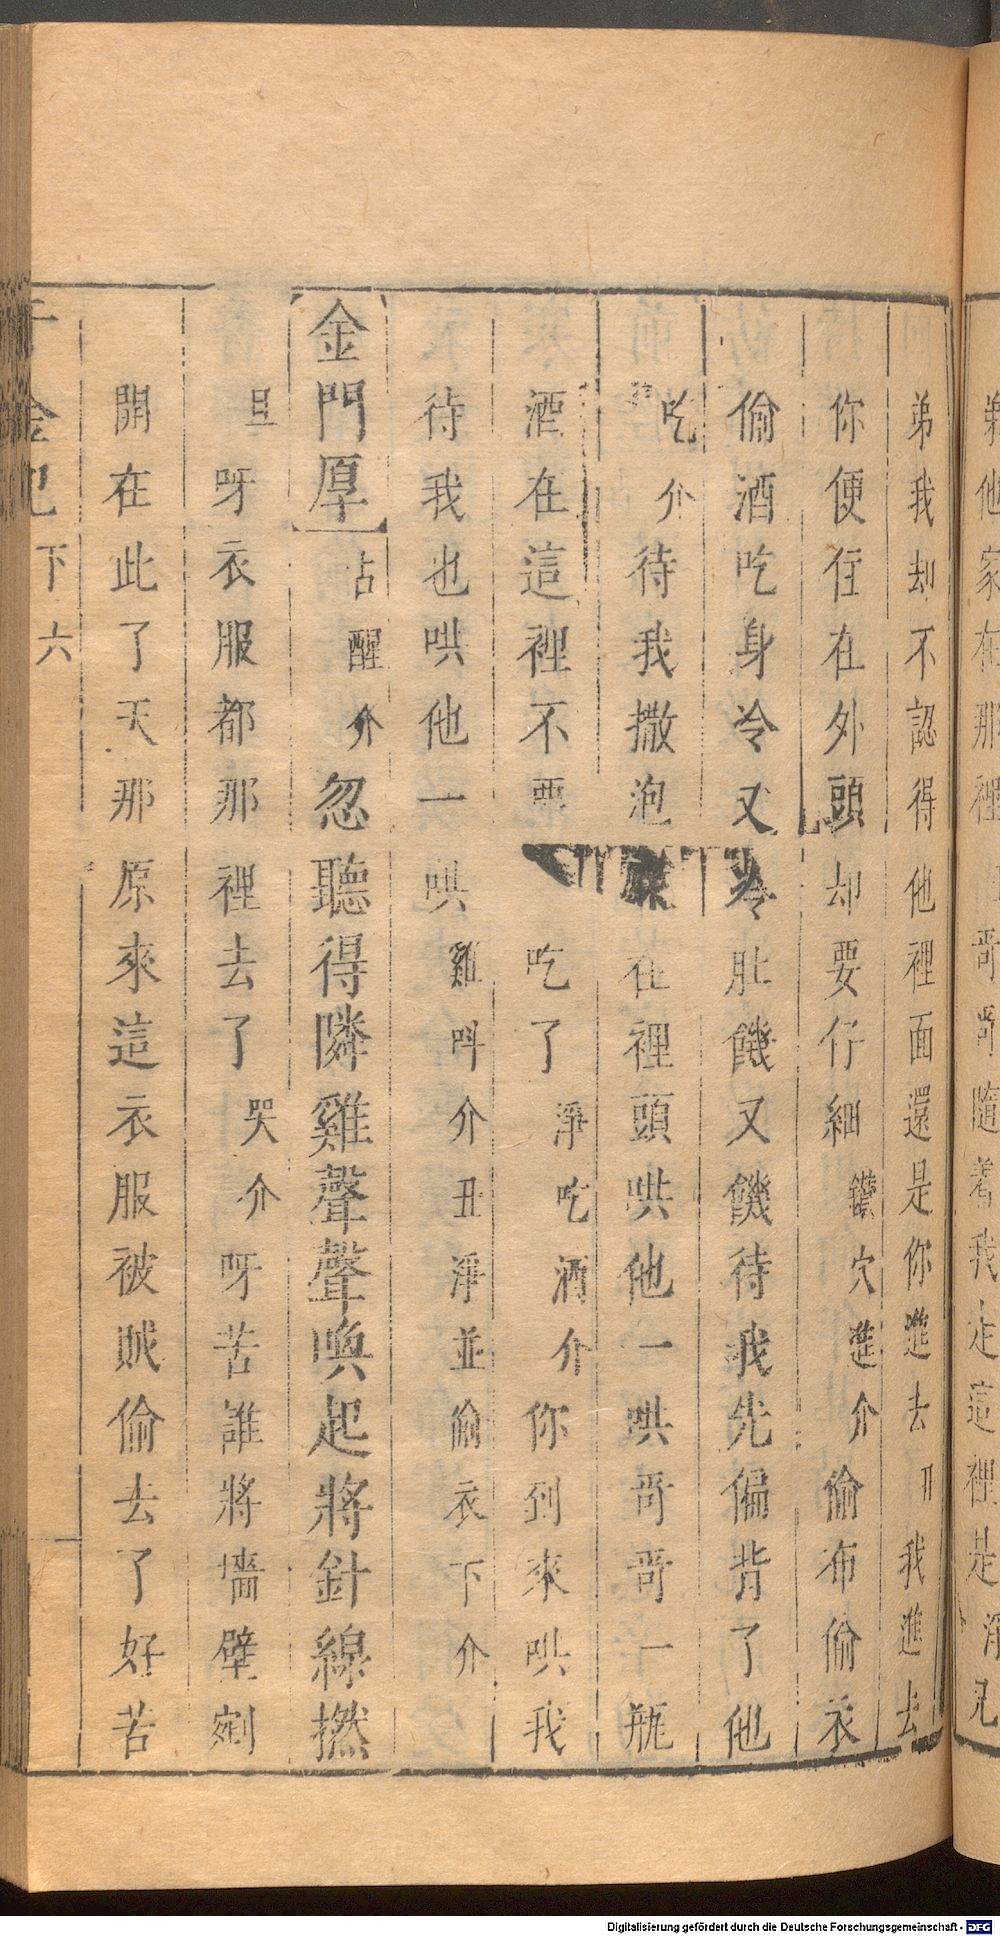 他家在那裡 哥哥隨着我走這裡是 淨 兄
弟我却不認得他裡面還是你進去 丑 我進去
你便在外頭却要仔細 鑽穴進介 偷布偷衣
偷酒吃身冷又冷肚饑又饑待我先偏背了他
吃介 待我撒泡 在裡頭哄他一哄哥哥一瓶
酒在這裡不要 吃了 淨吃酒介 你到來哄我
待我也哄他一哄 雞叫介丑淨並偷衣下介
金門厚 占醒介 忽聽得隣雞聲聲喚起將針線撚
旦 呀衣服都那裡去了 哭介 呀苦誰將墻壁剜
開在此了天那原來這衣服被賊偷去了好苦
下 六
Digitalisierung gefördert durch die Deutsche Forschungsgemeinschaft - DFG